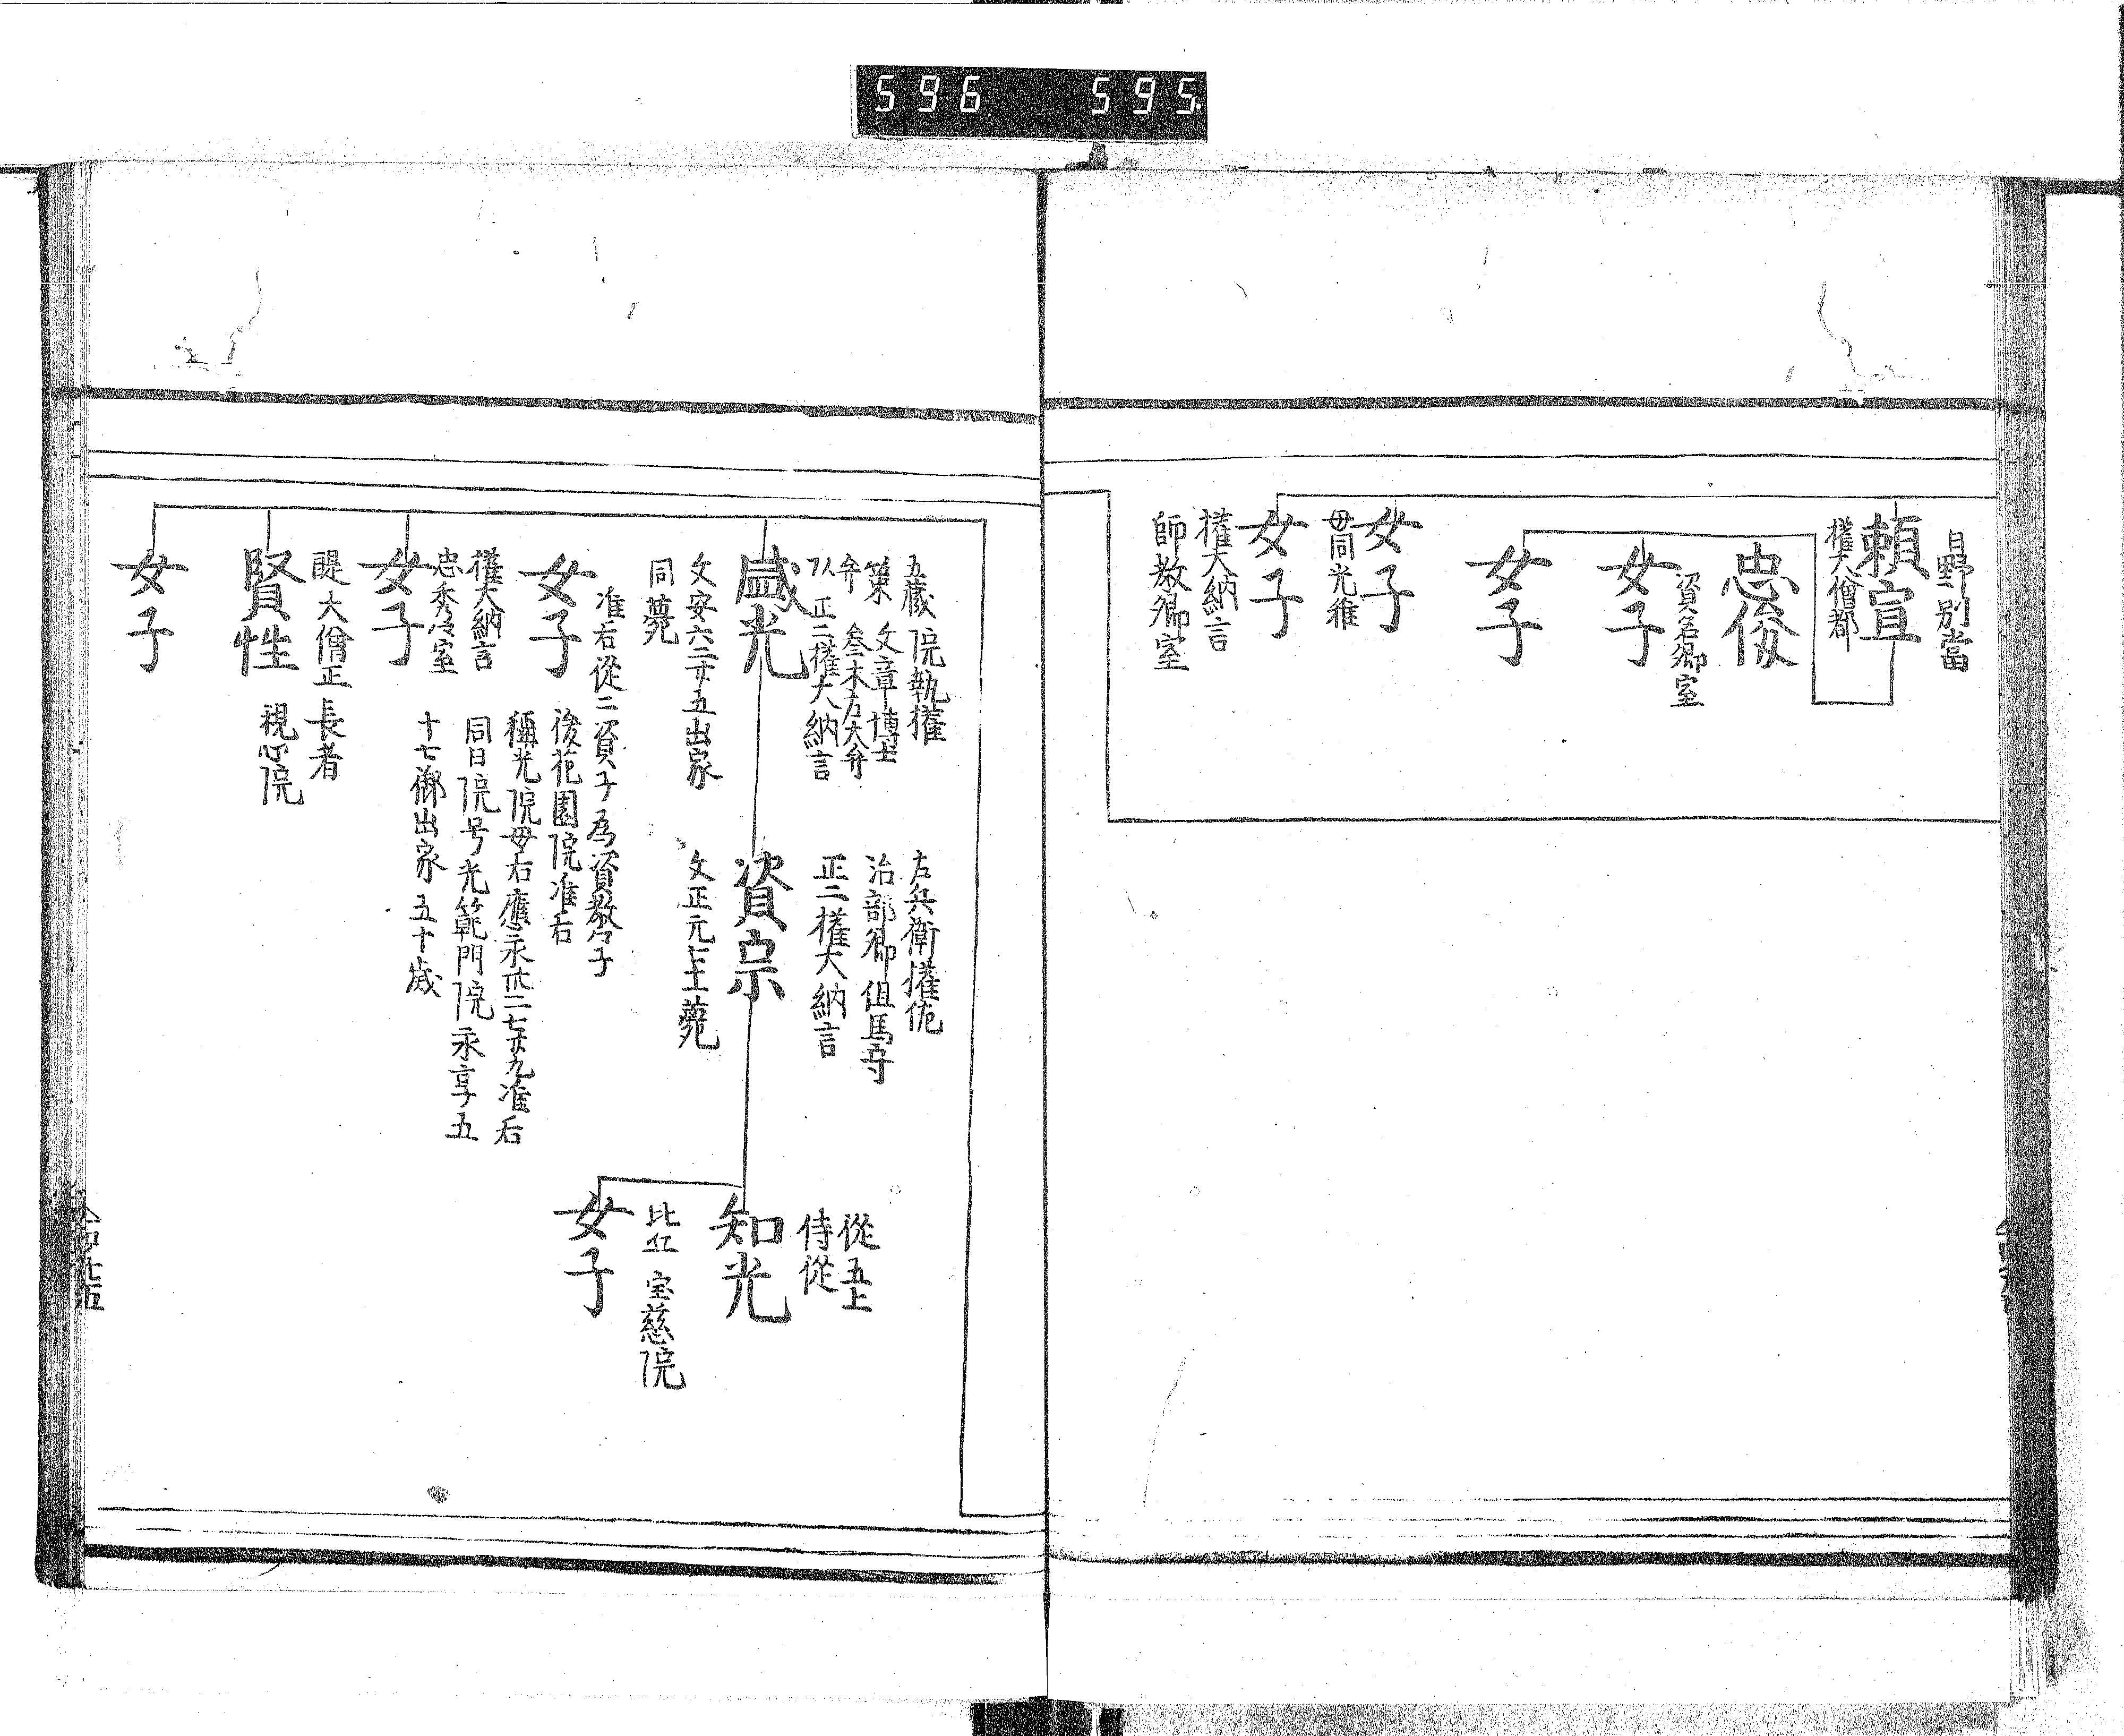 596 595
日野別當
頼宣
權大僧都
忠俊
資名卿室
女子
女子
女子
母同光雅
女子
權大納言
師教卿室
五藏 院執權
策 文章博士
弁 叁木右大弁
從正二權大納言
盛光
文安六二廿五出家
同薨
左兵衛權佐
治部卿但馬守
正二權大納言
資宗
文正元七十薨
從五上
侍從
知光
比丘 宝慈院
女子
准后從二資子為資教々子
後花園院准后
女子
稱光院母后應永卅二七廿九准后
同日院号光範門院永享五
十七御出家五十歳
權大納言
忠秀々室
女子
醍大僧正 長者
賢性 視心院
女子